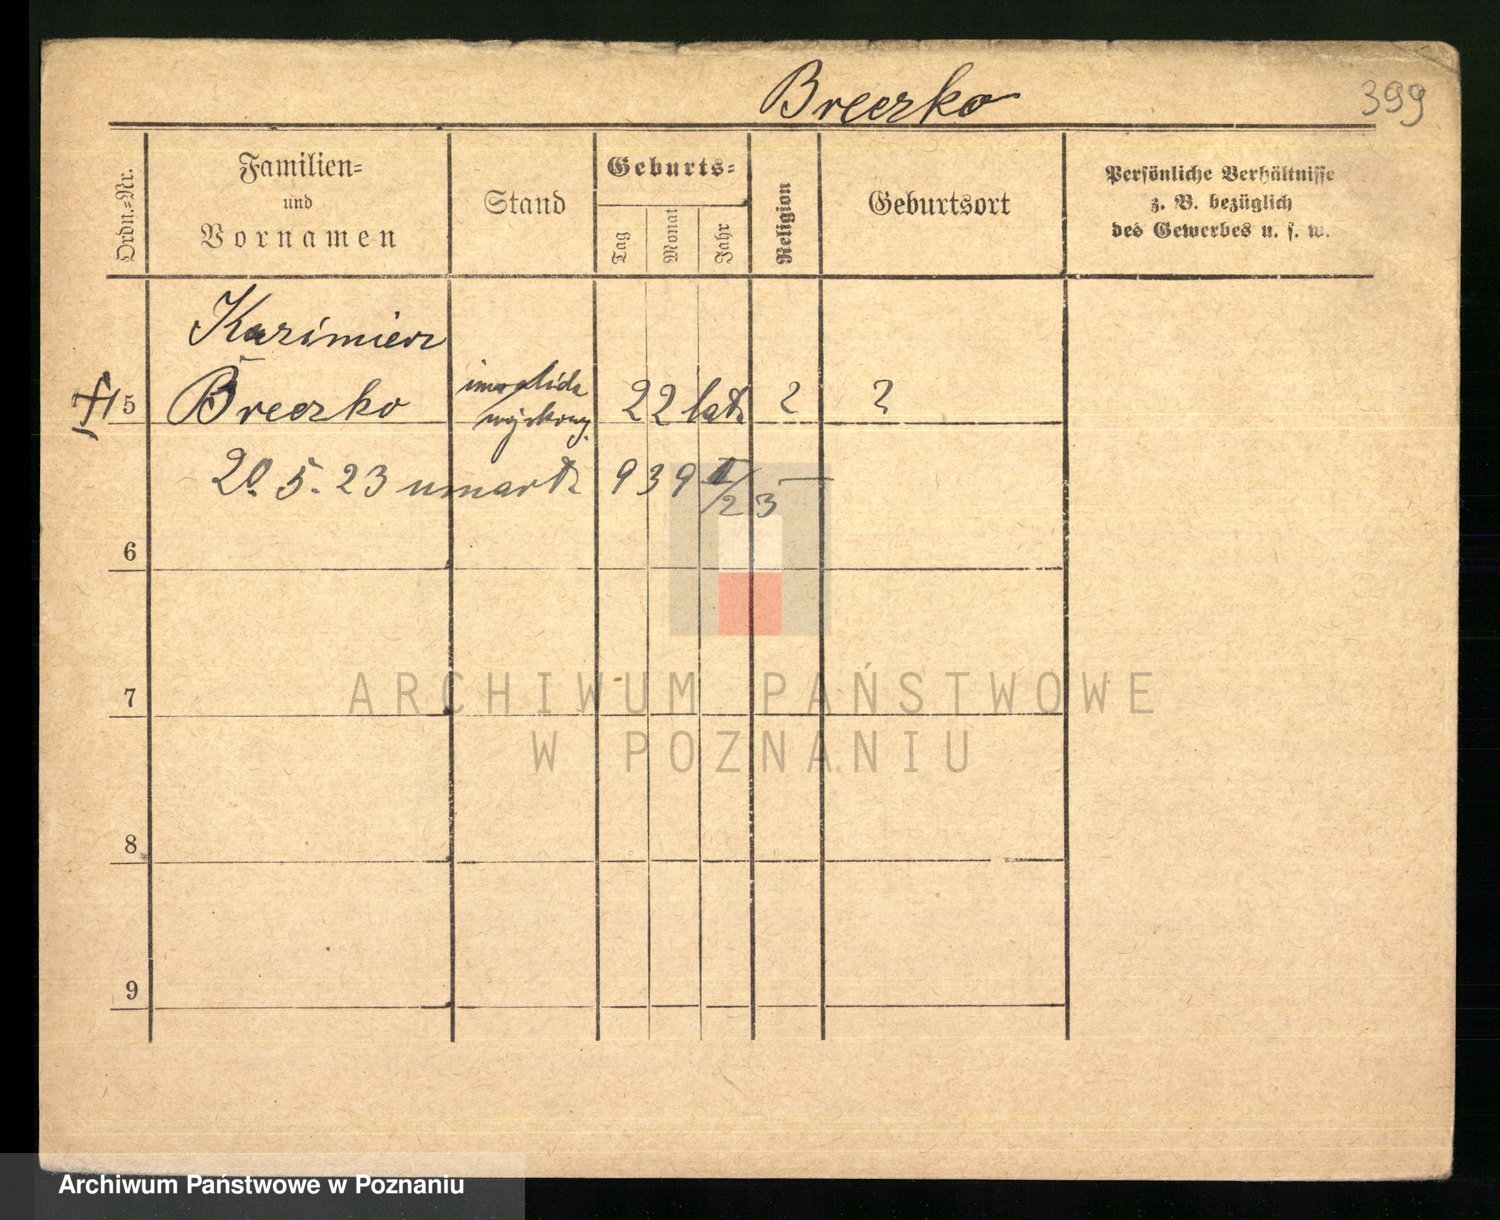 Breczko 399
Ordn.-Nr.
Familien-
und
Vornamen
Stand
Geburts-
Tag
Monat
Jahr
Religion
Geburtsort
Persönliche Verhältnisse
z. B. bezüglich
des Gewerbes u. s. w.
Kazimierz
5 Breczko inwalida wojskowy 22 lat ? ?
20. 5. 23 umarł 939 I/23
6
7
8
9
ARCHIWUM PAŃSTWOWE
W POZNANIU
Archiwum Państwowe w Poznaniu